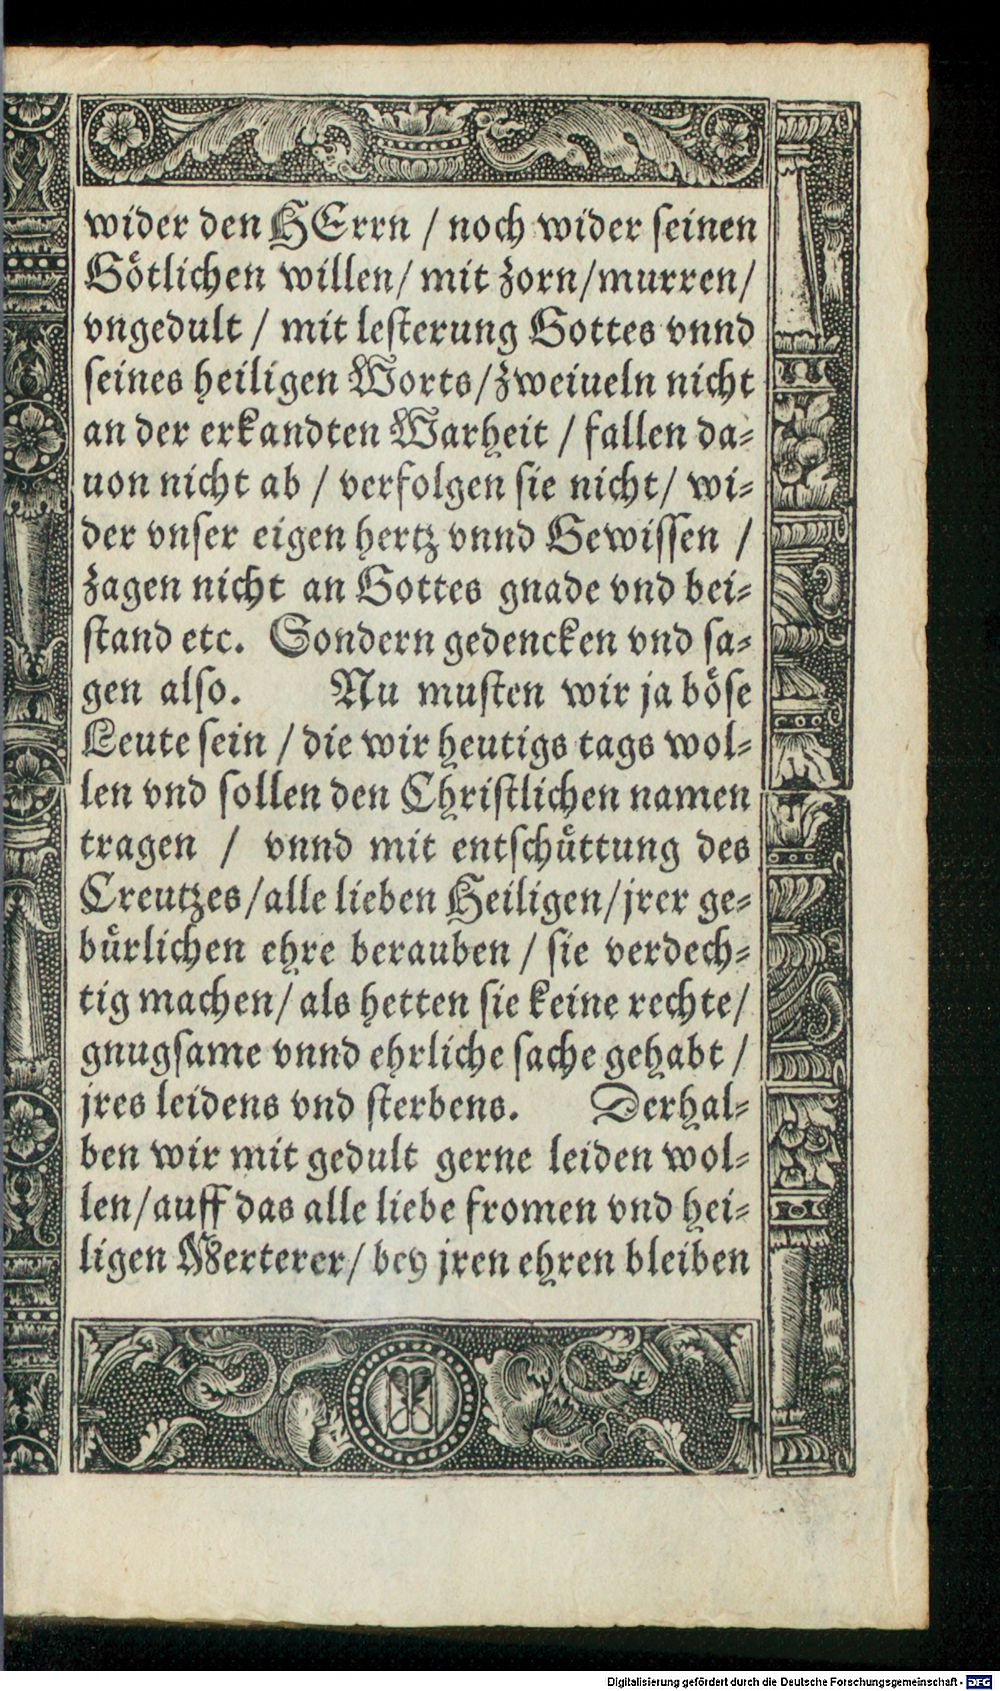 wider den HErrn / noch wider seinen
Götlichen willen/ mit zorn/murren/
vngedult / mit lesterung Gottes vnnd
seines heiligen Worts/zweiueln nicht
an der erkandten Warheit / fallen da-
uon nicht ab / verfolgen sie nicht/ wi-
der vnser eigen hertz vnnd Gewissen /
zagen nicht an Gottes gnade vnd bei-
stand etc. Sondern gedencken vnd sa-
gen also. Nu musten wir ja böse
Leute sein / die wir heutigs tags wol-
len vnd sollen den Christlichen namen
tragen / vnnd mit entschüttung des
Creutzes/alle lieben Heiligen/jrer ge-
bürlichen ehre berauben / sie verdech-
tig machen/ als hetten sie keine rechte/
gnugsame vnnd ehrliche sache gehabt /
jres leidens vnd sterbens. Derhal-
ben wir mit gedult gerne leiden wol-
len/auff das alle liebe fromen vnd hei-
ligen Merterer/ bey jren ehren bleiben
Digitalisierung gefördert durch die Deutsche Forschungsgemeinschaft - DFG